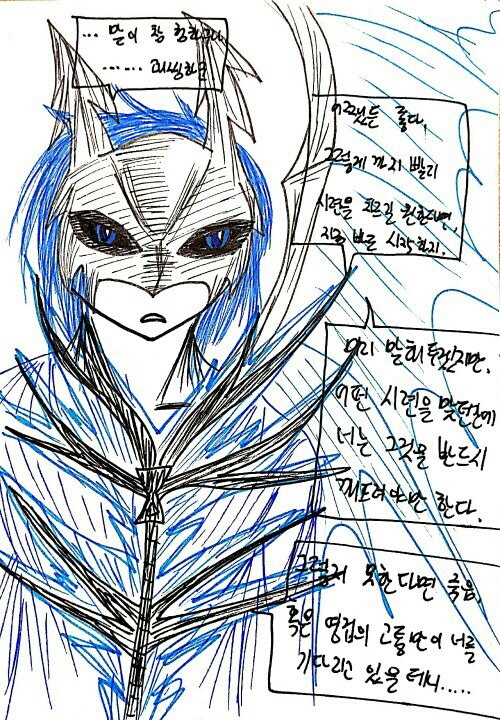 ... 말이 참 험하군.
어쨌든 좋다,
그렇게 까지 빨리
시련을 치르길 원한다면,
지금 바로 시작하지.
미리 말해두겠지만,
어떤 시련을 맞던간에
너는 그것을 반드시
한다.
그렇지 못한다면 죽음,
혹은 영겁의 고통만이 너를
기다리고 있을 테니.....